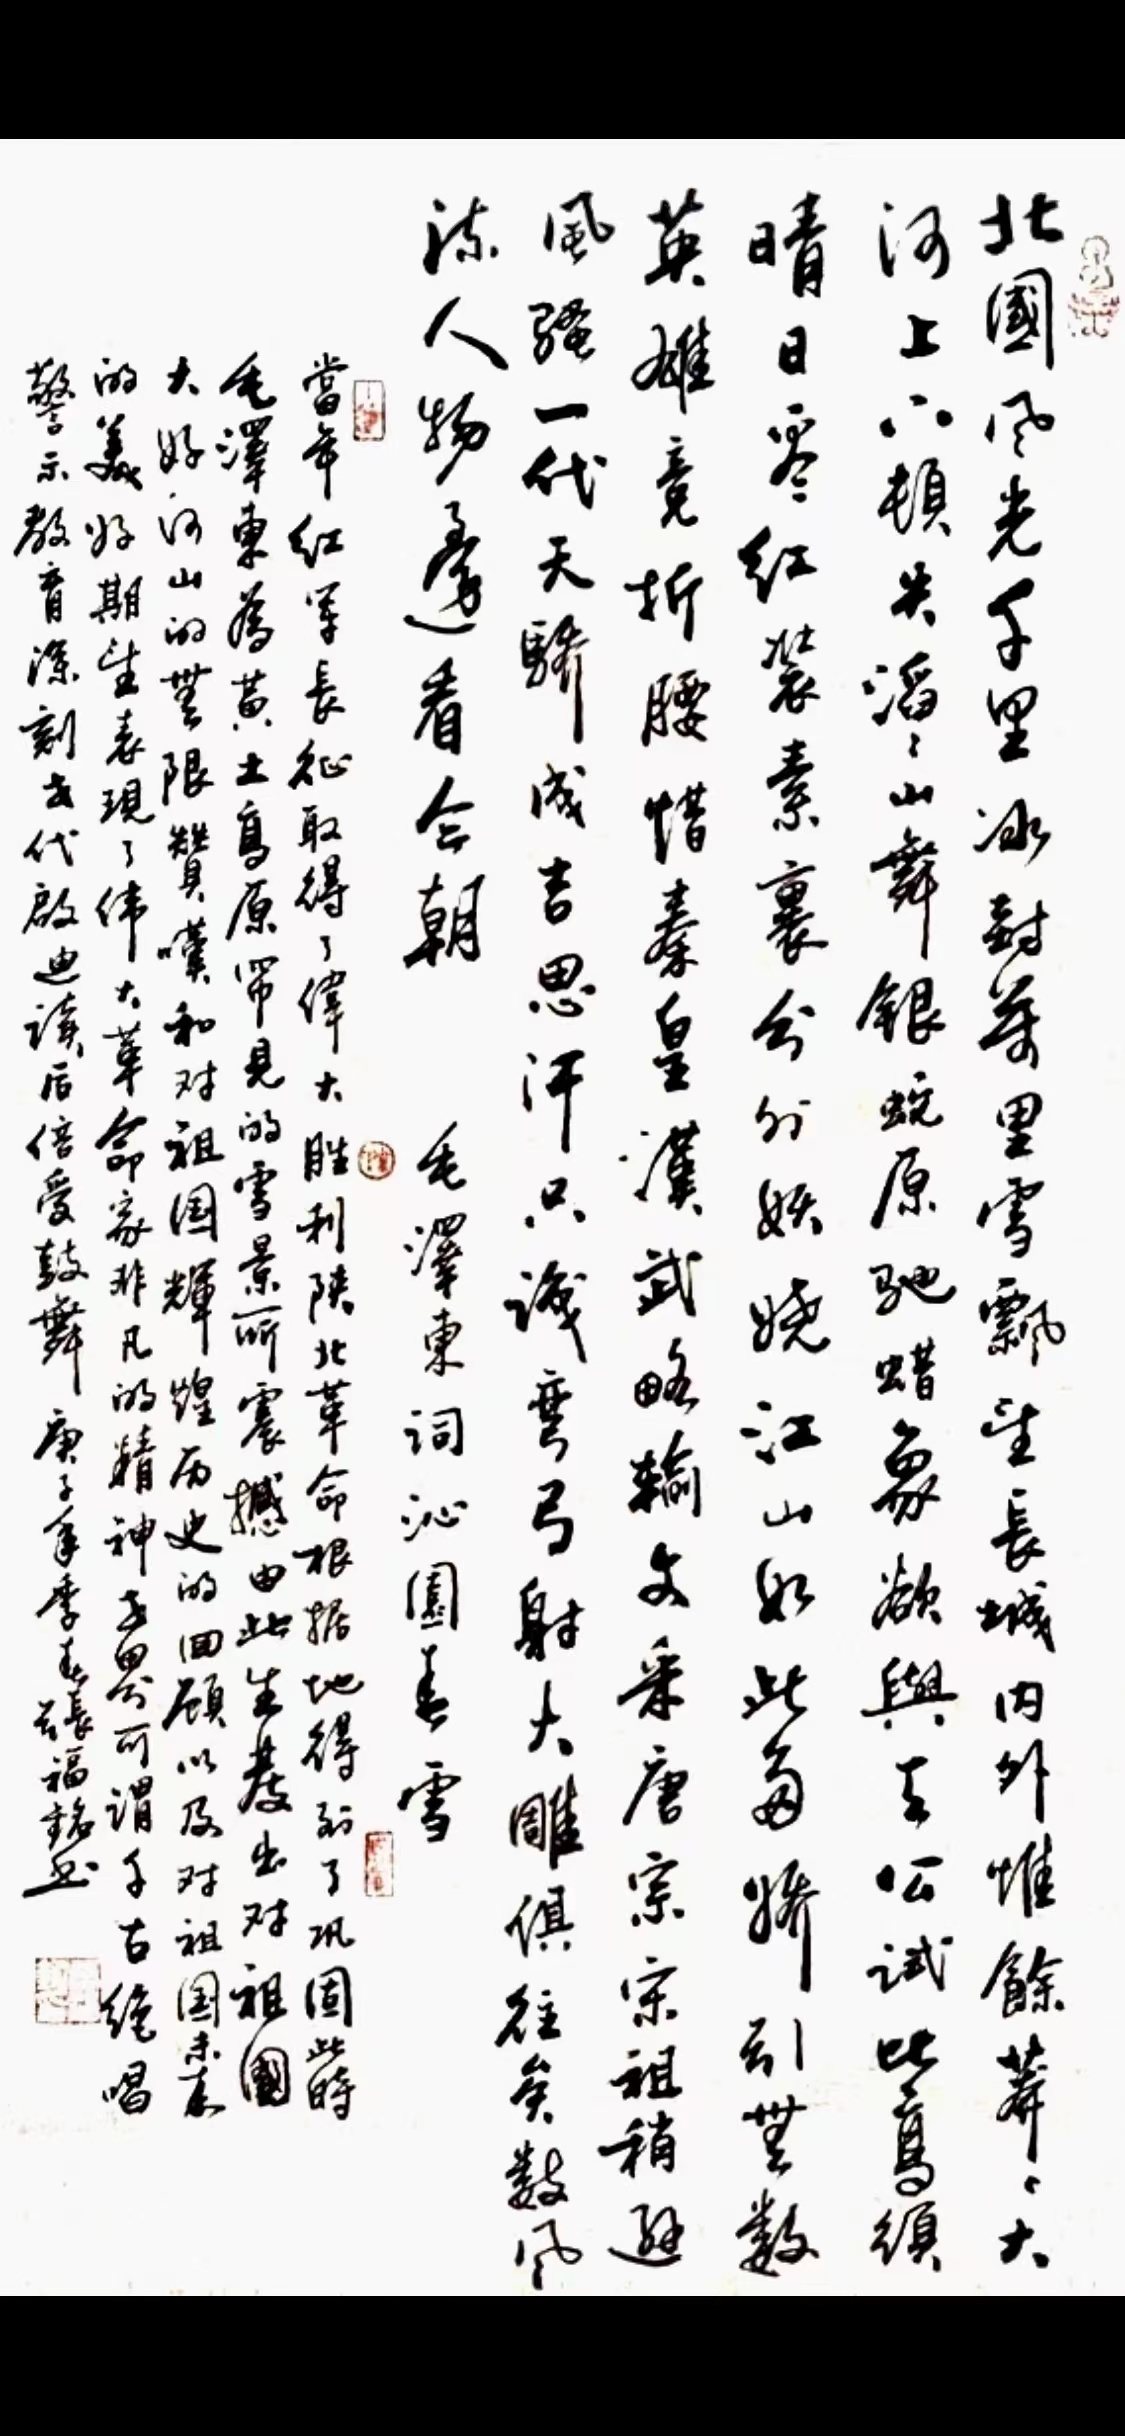 北國风光千里冰封萬里雪飘望長城内外惟餘莽〻大
河上下頓失滔〻山舞銀蛇原馳蜡象欲與天公試比高須
晴日看红装素裹分外妖娆江山如此多娇引無数
英雄竞折腰惜秦皇漢武略輸文采唐宗宋祖稍逊
風騷一代天驕成吉思汗只識弯弓射大雕俱往矣数风
流人物還看今朝 毛澤東詞沁園春雪
當年红军長征取得了偉大胜利陕北革命根据地得到了巩固此時
毛澤東為黄土高原罕見的雪景所震撼由此生發出对祖國
大好河山的無限贊嘆和对祖国輝煌历史的回顾以及对祖国未来
的美好期望表現了伟大革命家非凡的精神世界可謂千古绝唱
警示教育深刻世代啟迪读后倍受鼓舞 庚子年季春張福銘书